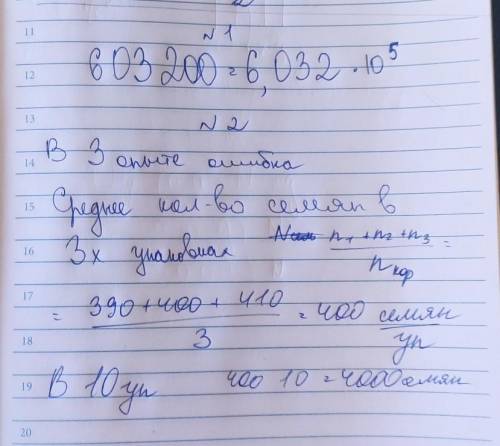 11
N 1
12 603 200 = 6,032 · 10⁵
13
N 2
14 В 3 опыте ошибка
15 Среднее кол-во семян в
16 3х упаковках (n₁ + n₂ + n₃) / n кор =
17 = (390 + 400 + 410) / 3 = 400 семян / уп
18
19 В 10 уп 400 10 = 4000 семян
20